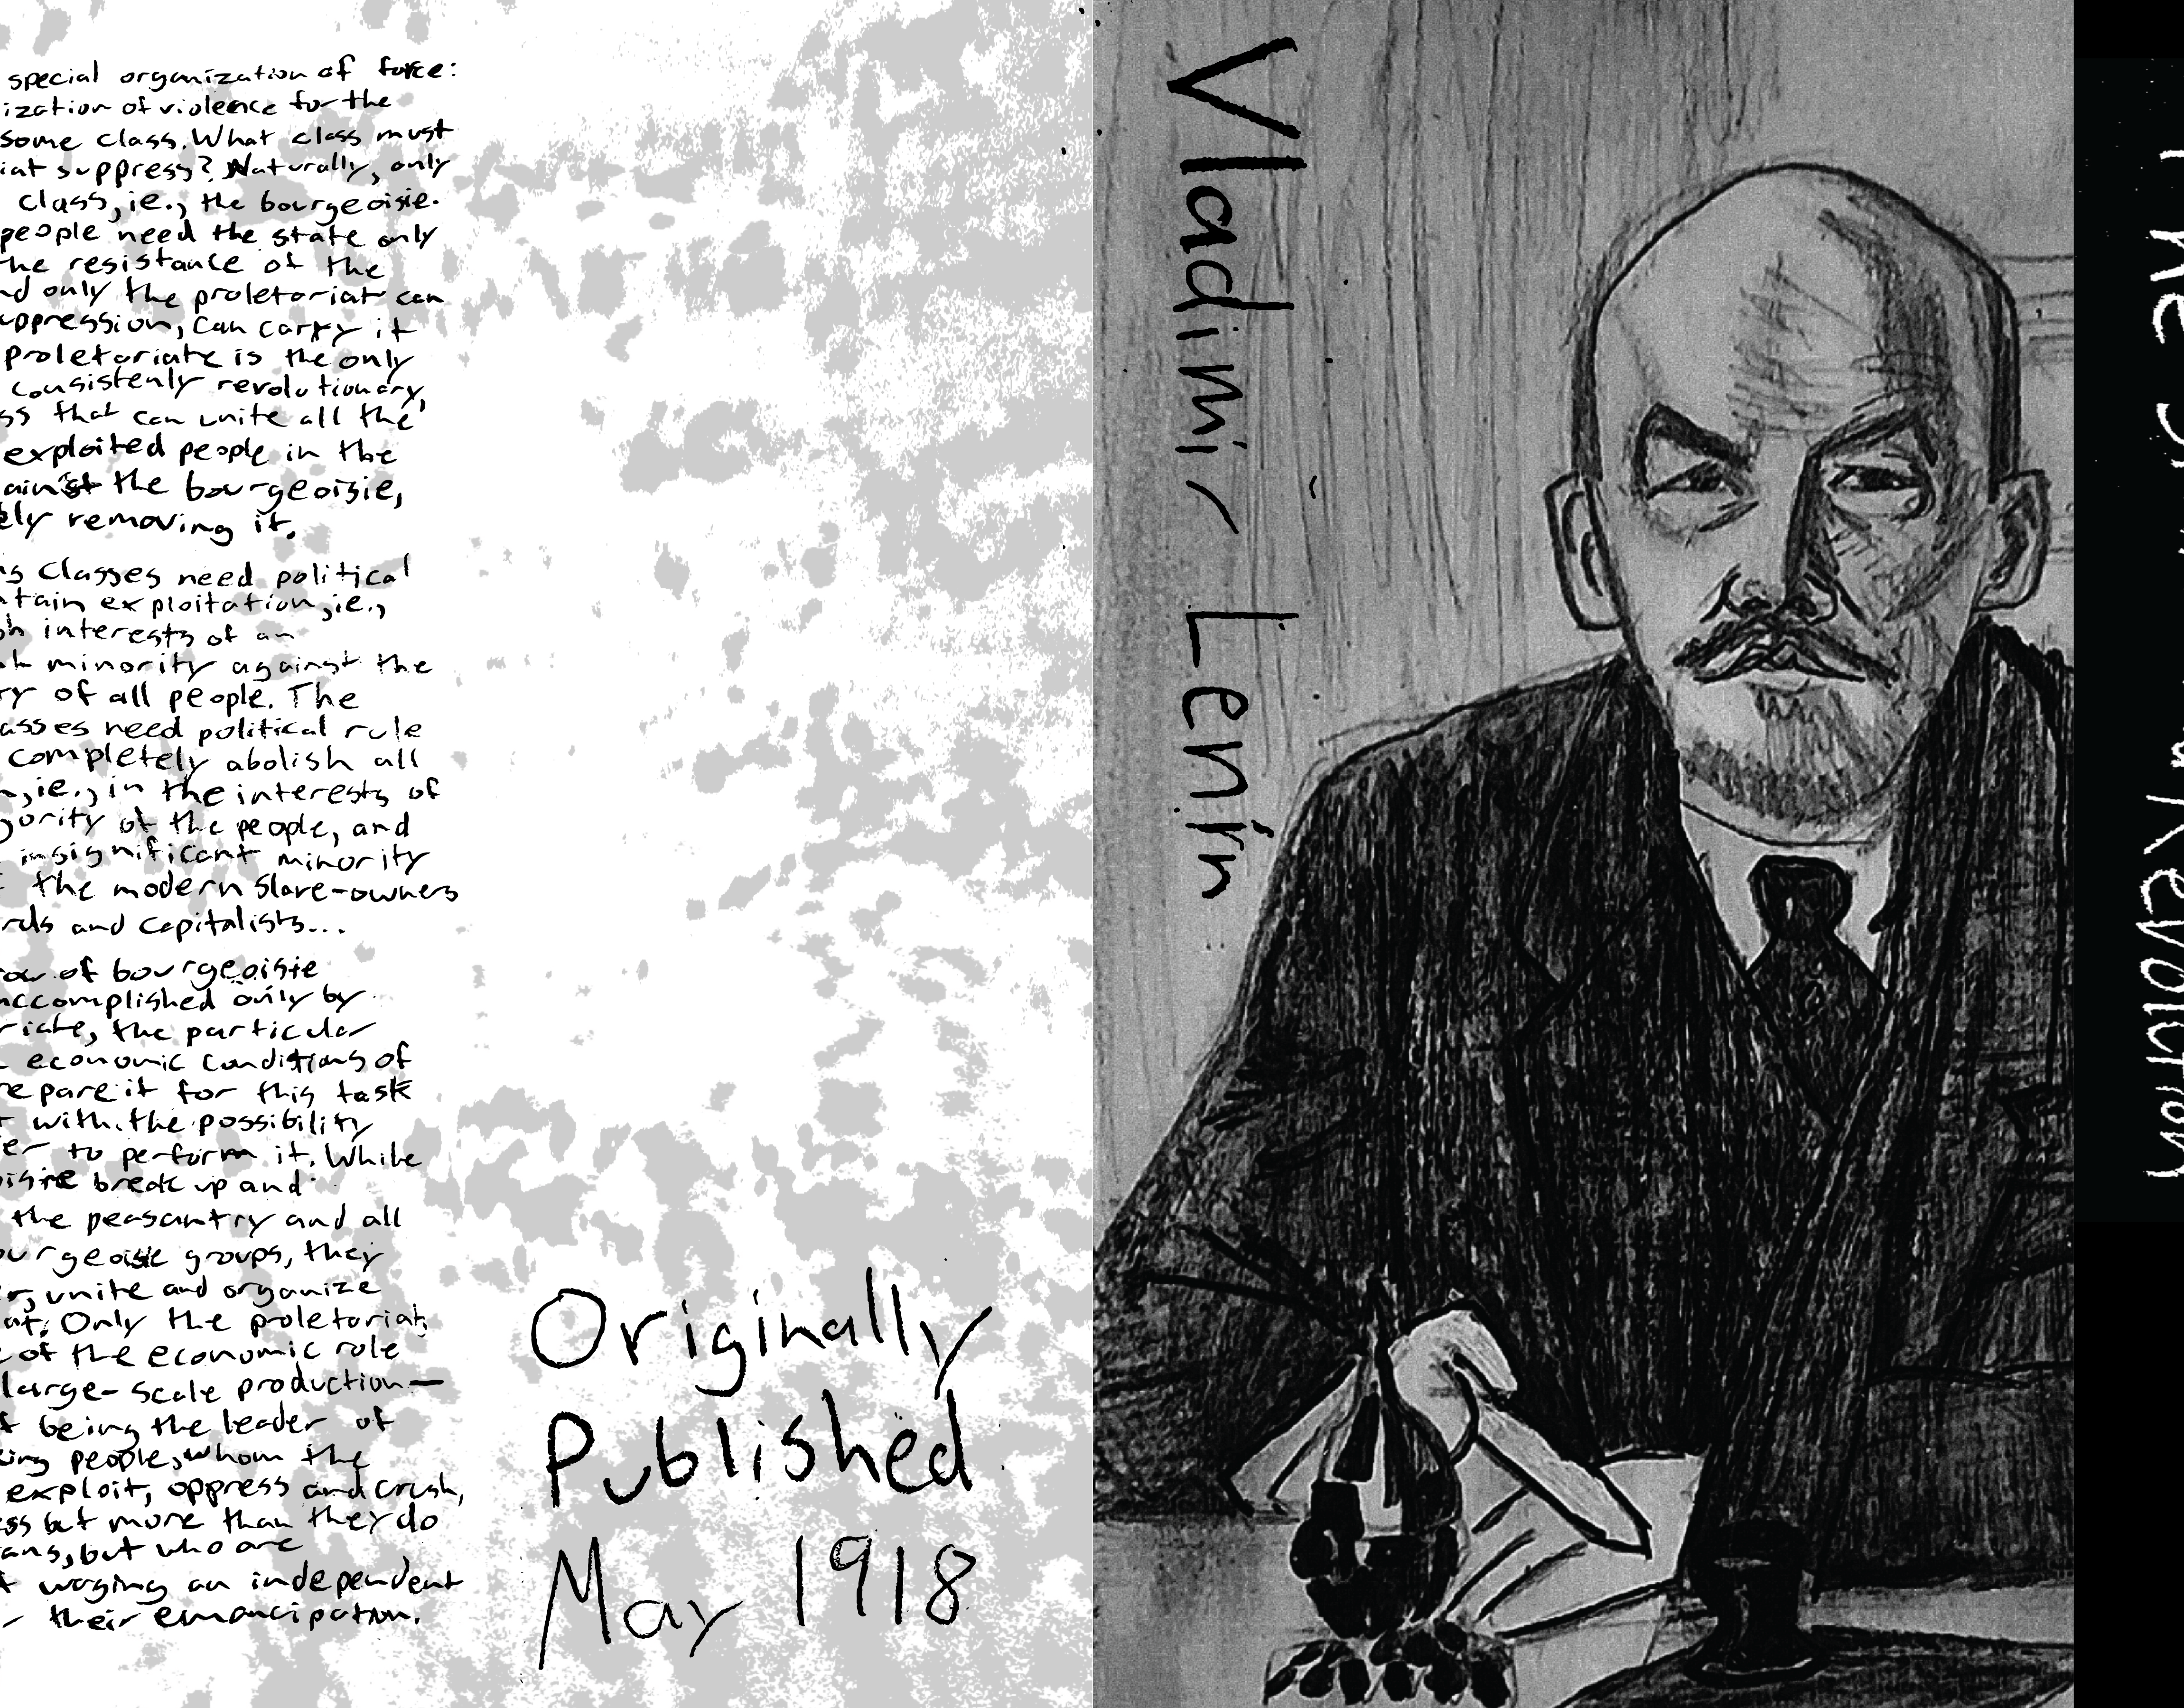 special organization of force:
ization of violence for the
some class. What class must
iat suppress? Naturally, only
class, ie., the bourgeoisie.
people need the state only
the resistance of the
nd only the proletariat can
uppression, can carry it
proletariate is the only
consistenly revolutionary,
ss that can unite all the
exploited people in the
ainst the bourgeoisie,
ely removing it.
ng classes need political
ntain exploitation, ie.,
sh interests of an
minority against the
ry of all people. The
asses need political rule
completely abolish all
n, ie., in the interests of
jority of the people, and
insignificant minority
the modern slave-owners
rds and capitalists...
row of bourgeoisie
accomplished only by
riate, the particular
economic conditions of
repare it for this task
t with the possibility
er to perform it. While
oisie break up and
the peasantry and all
ourgeoisie groups, they
er, unite and organize
at. Only the proletariat
e of the economic role
large-scale production—
f being the leader of
king people, whom the
exploit, oppress and crush,
ess but more than they do
ans, but who are
t waging an independent
r their emancipation.
Originally
Published
May 1918
Vladimir Lenin
Revolution